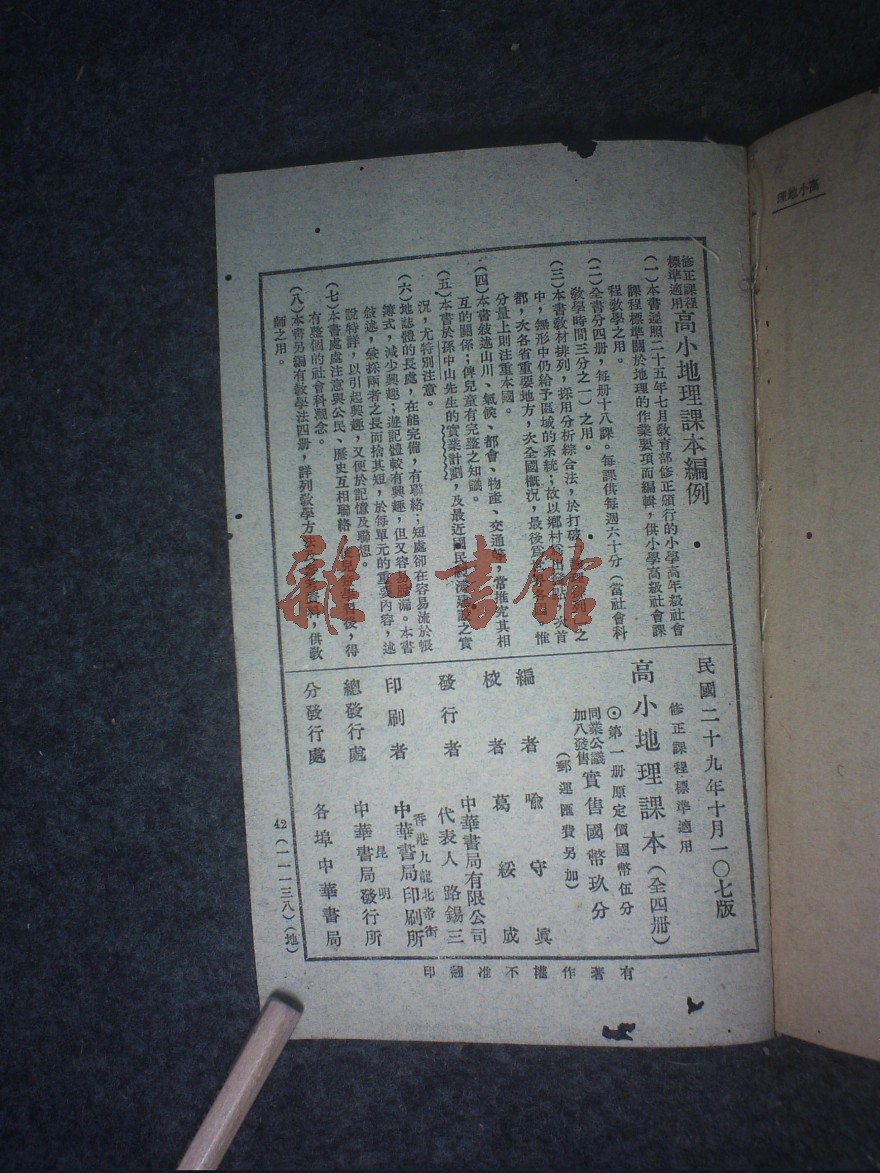 高小地理
修正課程
標準適用
高小地理課本編例
(一)本書遵照二十五年七月教育部修正頒行的小學高年級社會
課程標準關於地理的作業要項而編輯,供小學高級社會課
程教學之用。
(二)全書分四册,每册十八課。每課供每週六十分(當社會科
教學時間三分之一)之用。
(三)本書教材排列,採用分析綜合法,於打破 列 之
中,無形中仍給予區域的系統;故以鄉村 次首
都,次各省重要地方,次全國概況,最後 惟
分量上則注重本國。
(四)本書敍述山川、氣候、都會、物產、交通等,當推究其相
互的關係;俾兒童有完整之知識。
(五)本書於孫中山先生的實業計劃,及最近國民 建設之實
況,尤特別注意。
(六)地誌體的長處,在能完備,有聯絡;短處卻在容易流於帳
簿式,減少興趣;遊記體較有興趣,但又容易 漏。本書
敍述,兼採兩者之長而捨其短,於每單元的重要內容,述
說特詳,以引起興趣,又便於記憶及聯想。
(七)本書處處注意與公民、歷史互相聯絡 使兒童 後,得
有整個的社會科觀念。
(八)本書另編有教學法四册,詳列教學方法 資料,供教
師之用。
民國二十九年十月一〇七版
修正課程標準適用
高小地理課本(全四册)
⊙第一册原定價國幣伍分
同業公議
加八發售
實售國幣玖分
(郵運匯費另加)
編者 喩守眞
校者 葛綏成
發行者 中華書局有限公司
代表人 路錫三
印刷者 香港九龍北帝街
中華書局印刷所
總發行處 昆明
中華書局發行所
分發行處 各埠中華書局
有著作權不准翻印
42(一一一三八)(地)
雜 書館